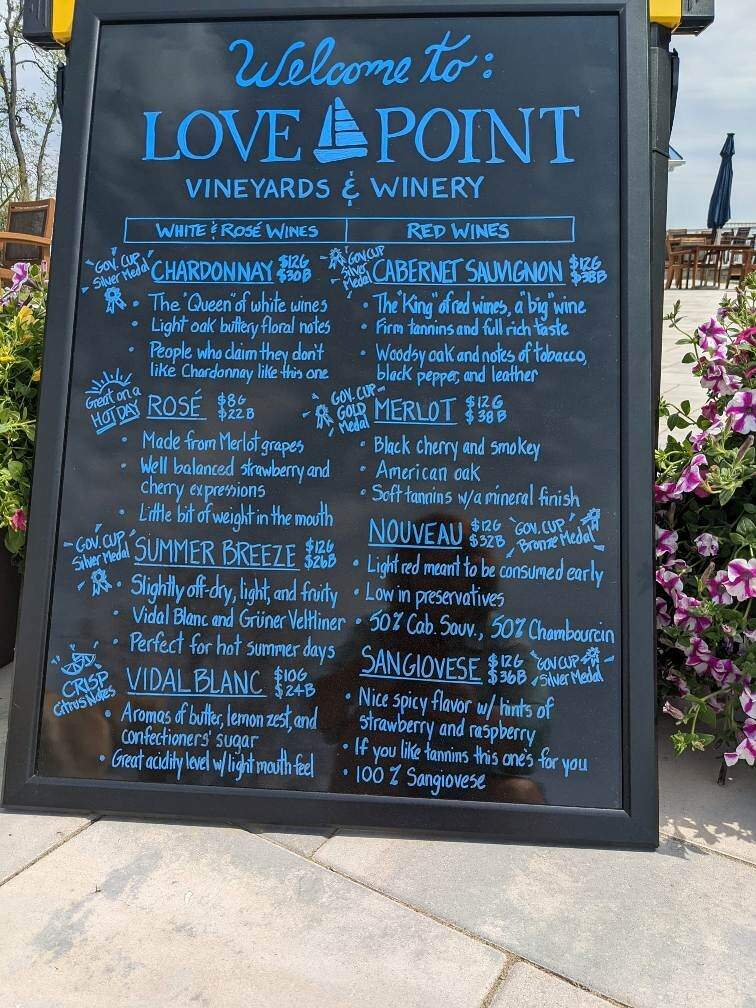 Welcome to:
LOVE POINT
VINEYARDS & WINERY
WHITE & ROSÉ WINES
GOV. CUP
Silver Medal
CHARDONNAY $12G
$30B
• The "Queen" of white wines
• Light oak buttery floral notes
• People who claim they don't
like Chardonnay like this one
Great on a
HOT DAY
ROSÉ $8G
$22B
• Made from Merlot grapes
• Well balanced strawberry and
cherry expressions
• Little bit of weight in the mouth
GOV. CUP
Silver Medal
SUMMER BREEZE $12G
$26B
• Slightly off-dry, light, and fruity
• Vidal Blanc and Grüner Veltliner
• Perfect for hot summer days
CRISP
Citrus Notes
VIDAL BLANC $10G
$24B
• Aromas of butter, lemon zest, and
confectioners' sugar
• Great acidity level w/ light mouth feel
RED WINES
GOV CUP
Silver
Medal
CABERNET SAUVIGNON $12G
$38B
• The "King" of red wines, a "big" wine
• Firm tannins and full rich taste
• Woodsy oak and notes of tobacco,
black pepper, and leather
GOV. CUP
GOLD
Medal
MERLOT $12G
$38B
• Black cherry and smokey
• American oak
• Soft tannins w/ a mineral finish
NOUVEAU $12G
$32B
GOV. CUP
Bronze Medal
• Light red meant to be consumed early
• Low in preservatives
• 50% Cab. Sauv., 50% Chambourcin
SANGIOVESE $12G
$36B
GOV CUP
Silver Medal
• Nice spicy flavor w/ hints of
strawberry and raspberry
• If you like tannins this one's for you
• 100% Sangiovese